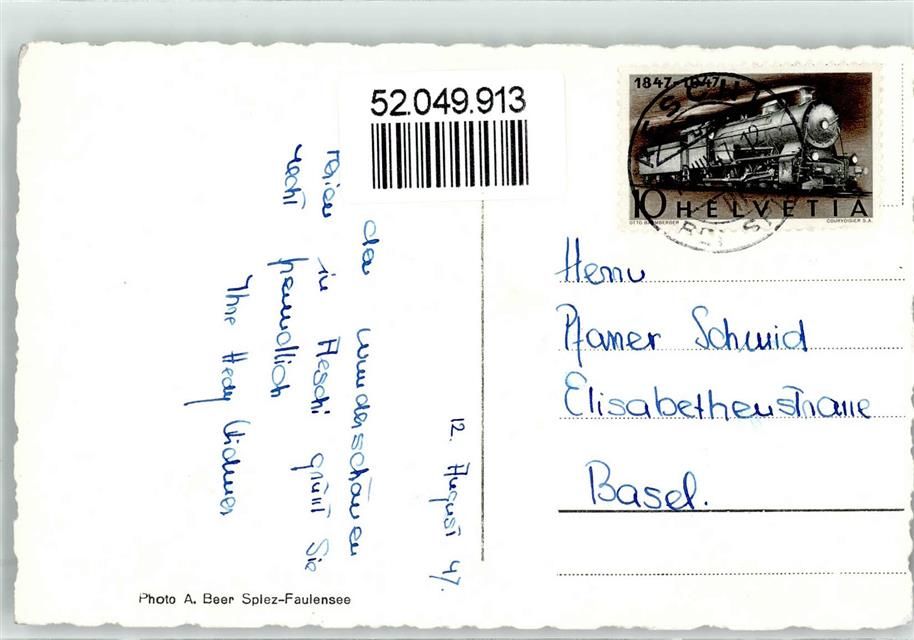 52.049.913
1847-1947
10 HELVETIA
COURVOISIER S.A.
AESCHI
12. August 47.
der wunderschönen
Ferien in Aeschi grüsst Sie
recht freundlich
Ihre Hedy Widmer
Herrn
Pfarrer Schmid
Elisabethenstrasse
Basel.
Photo A. Beer Spiez-Faulensee